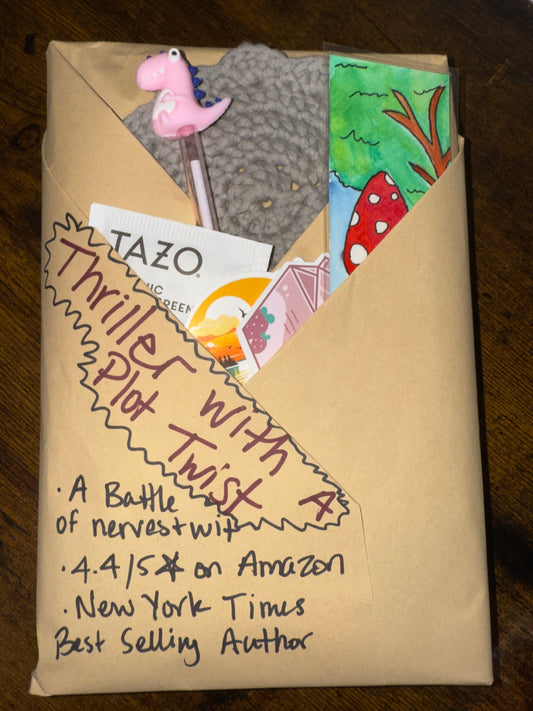 TAZO.
NIC
GREEN
Thriller with A
Plot Twist
· A Battle
of nerves+wit
· 4.4/5☆ on Amazon
· New York Times
Best Selling Author